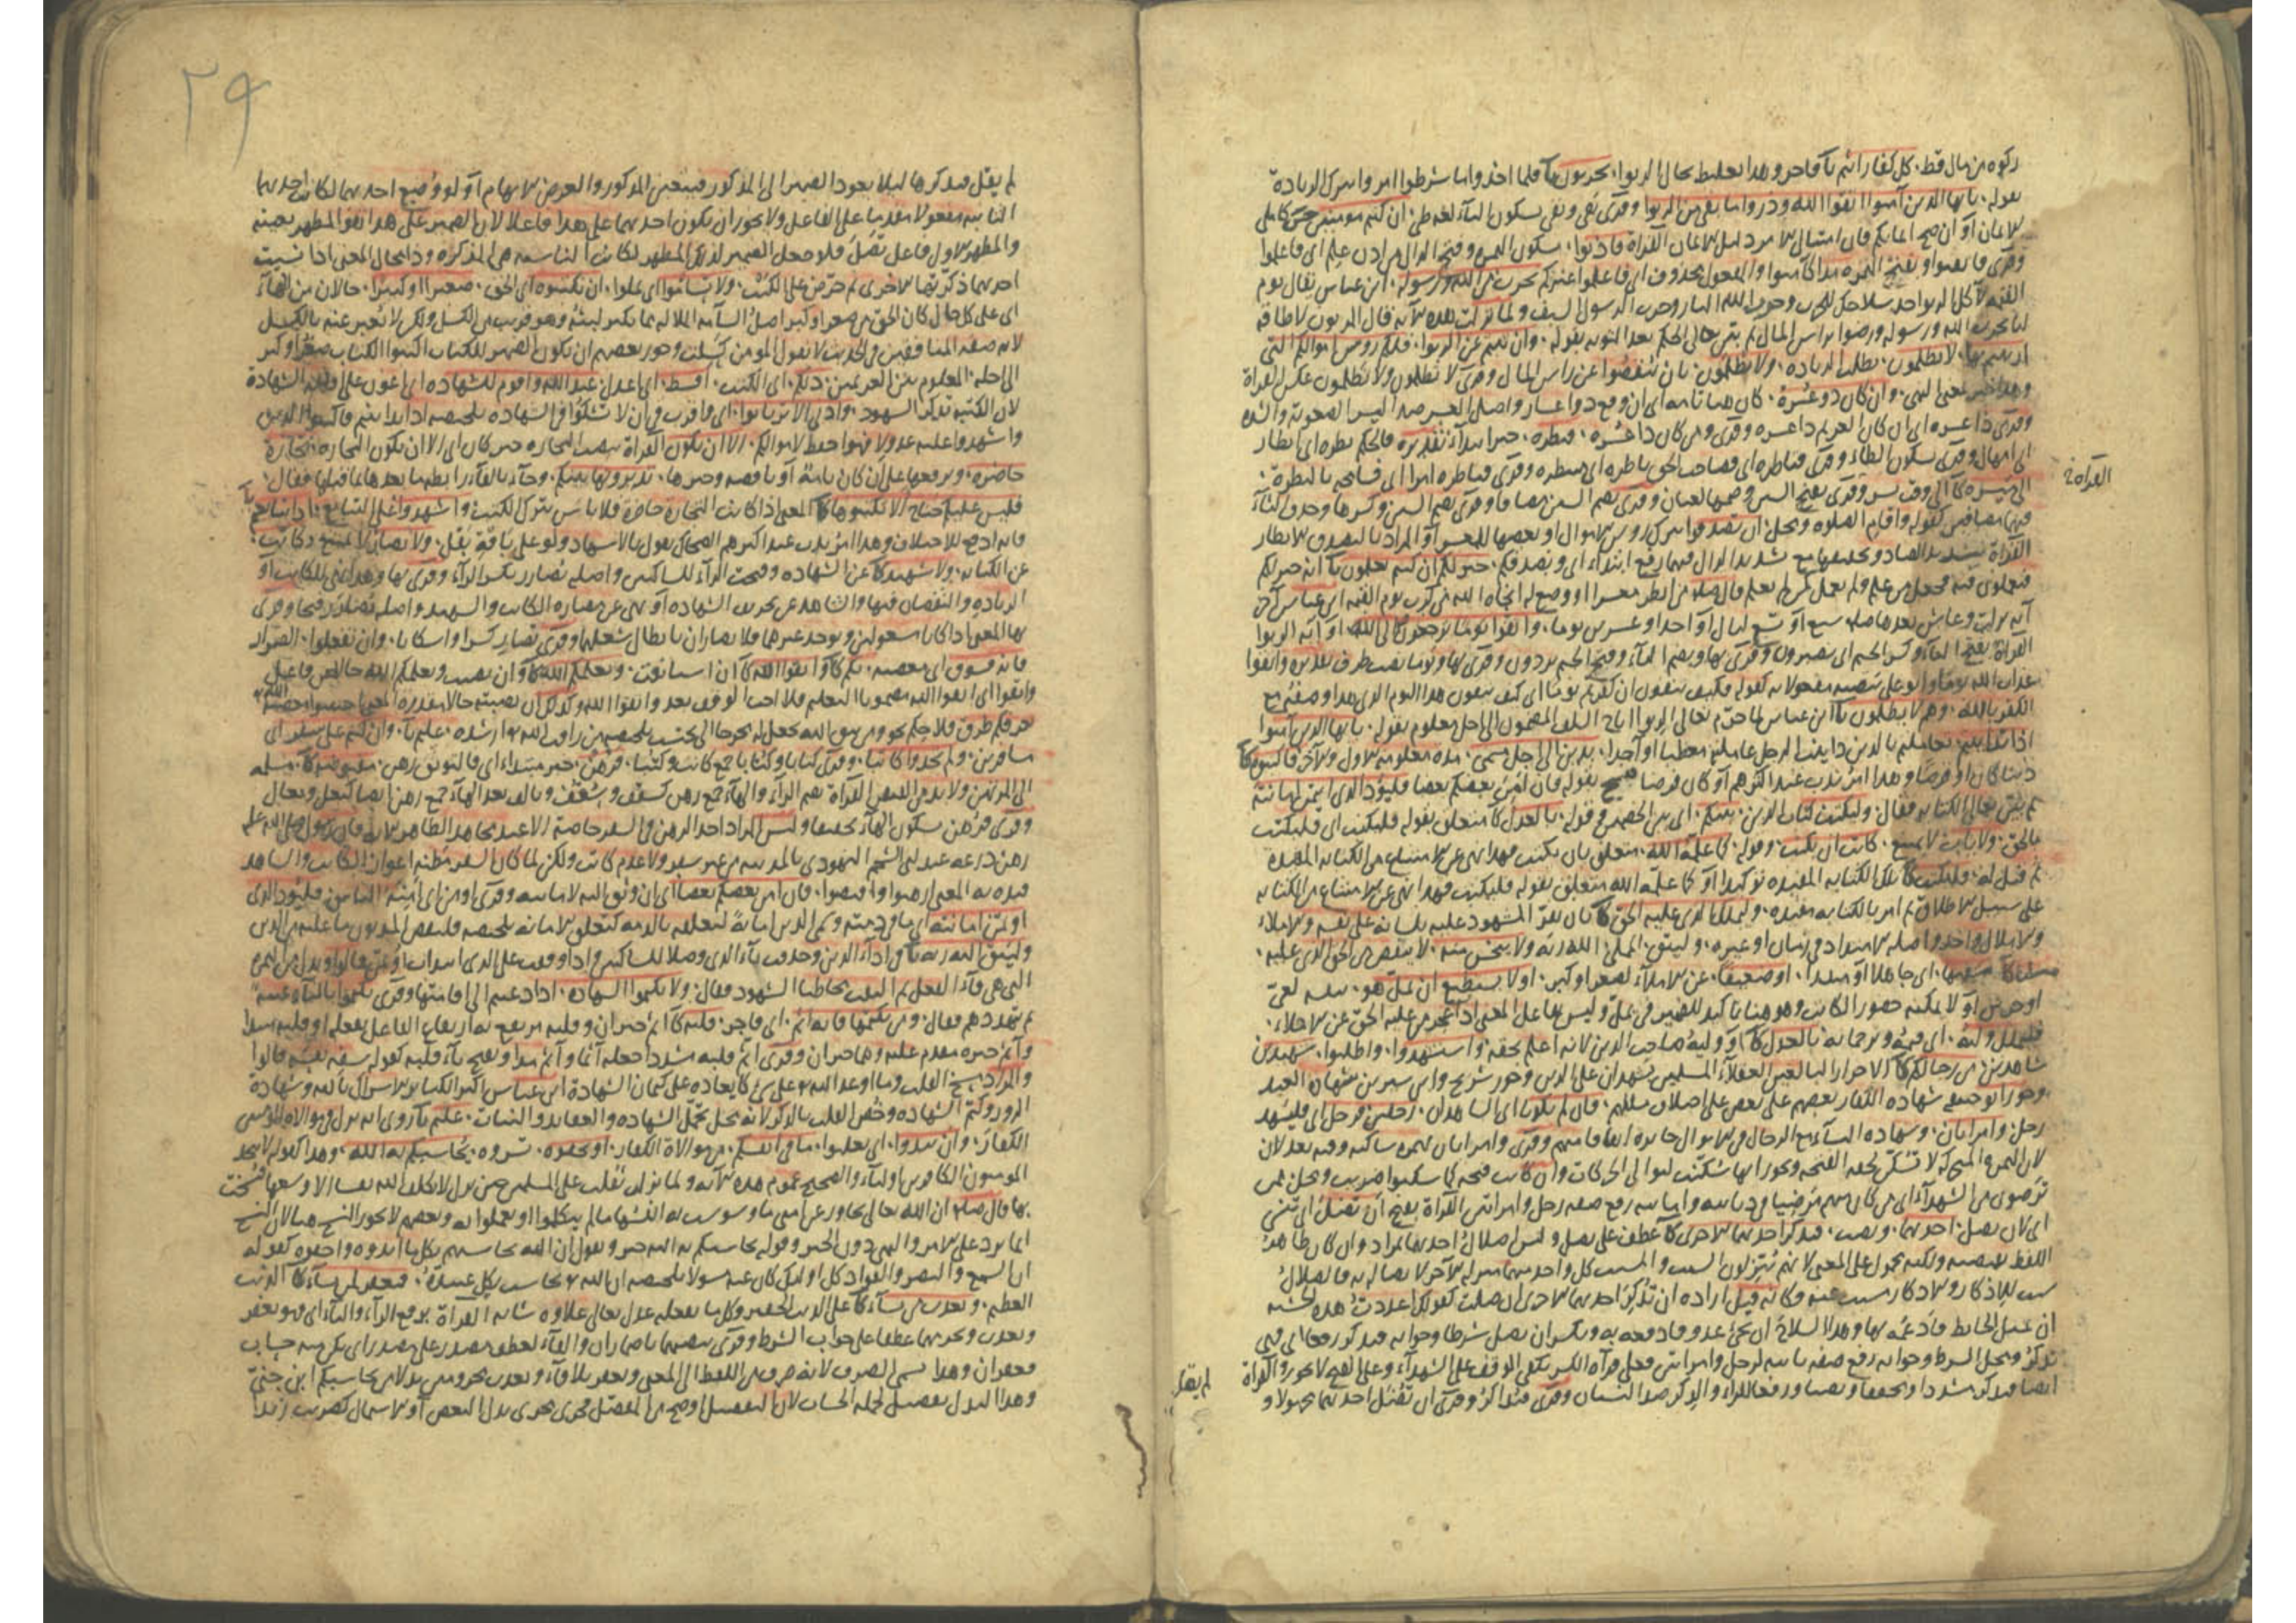 زكوة من مال قط. كل كفار اثيم بآ فاجر وهذا تغليظ بحال الربوا. يحزنون بآ فلما اخذوا ما شرطوا امروا بترك الزيادة
بقوله يا يها الذين آمنوا اتقوا الله وذروا ما بقي من الربوا وقرئ بقى وبقي بسكون الياء لغة طي ان كنتم مومنين
الايمان او ان صح ايمانكم فان امتثال الامر دليل الايمان القراة فاذنوا بسكون الهمزة وفتح الذال من اذن علم اى فاعلموا
وقرى فايقنوا وبفتح الهمزة مدا كآمنوا والمفعول محذوف اى فاعلموا غيركم بحرب من الله ورسوله ابن عباس يقال يوم
القيمة لآكل الربوا خذ سلاحك للحرب وحرب الله النار وحرب الرسول السيف ولما نزلت هذه الآية قال المربون لا طاقة
لنا بحرب الله ورسوله ورضوا براس المال ثم بين تعالى الحكم بعد التوبة بقوله وان تبتم عن الربوا فلكم روس اموالكم التي
لا تظلمون بطلب الزيادة ولا تظلمون بان تنقصوا عن راس المال وقرى لا تظلمون ولا تظلمون عكس القراة
معنى النهي وان كان ذو عسرة كان هنا تامة اى ان وقع ذو اعسار واصل العسر ضد اليسر الصعوبة والشدة
وقرى ذا عسرة اى ان كان الغريم ذا عسرة وقرى ومن كان ذا عسرة فنظرة خبر ابتداء تقديره فالحكم نظرة اى انظار
اى امهال وقرى بسكون الظاء وقرى فناظره اى فصاحب الحق ناظره اى منتظره وقرى فناظره امرا اى فسامحه بالنظرة
القراة
الى ميسرة كآ الى وقت يسر وقرى بفتح السين وضمها لغتان وقرى بضم السين مضافا وقرى بضم السين وكسرها وحذف التاء
فيهما مضافين كقوله واقام الصلوة وبحل ان تصدقوا بترك روس الاموال او بعضها للمعسر او المراد بالتصدق الانظار
القراة بتشديد الصاد وتخفيفها مع شديد الدال فيها رفع ابتداء اى وتصدقكم خير لكم ان كنتم تعلمون بآ انه خير لكم
آية نزلت وعاش بعدها صلعم سبع او تسع ليال او احدا وعشرين يوما واتقوا يوما ترجعون فيه الى الله او آية الربوا
القراة بفتح التاء وكسر الجيم اى تصيرون وقرى بها وبضم التاء وفتح الجيم تردون وقرى بها ويوما نصب ظرف تقديره واتقوا
الكفر بالله وهم لا يظلمون بآ ابن عباس لما حرم تعالى الربوا اباح السلف المضمون الى اجل معلوم بقوله يا يها الذين آمنوا
اذا تداينتم تعاملتم بالدين داينت الرجل عاملته معطيا او آخذا بدين الى اجل مسمى مدة معلومة الاول والآخر فاكتبوه كآ
دينا كان او قرضا وهذا امر ندب عند اكثرهم او كان فرضا فنسخ بقوله فان امن بعضكم بعضا فليؤد الذى ائتمن امانته
ثم بين تعالى الكتابة فقال وليكتب كتاب الدين بينكم اى بين الخصمين وقوله بالعدل كآ متعلق بقوله فليكتب اى فليكتب
بالحق ولا ياب لا يمتنع كاتب ان يكتب وقوله كما علمه الله متعلق بان يكتب فهذا نهى عن الامتناع من الكتابة المقيدة
ثم قيل له فليكتب كآ تلك الكتابة المقيدة توكيدا او كما علمه الله متعلق بقوله فليكتب فهذا نهى عن الامتناع من الكتابة
على سبيل الاطلاق ثم امر بالكتابة مقيدة وليملل الذى عليه الحق كآ بان يقر المشهود عليه بلسانه على نفسه والاملاء
والاملال واحد واصله الامتداد في زمان او غيره وليتق المملى الله ربه ولا يبخس منه لا ينقص من الحق الذى عليه
سفيها اى جاهلا او مبذرا او ضعيفا عن الاملاء لصغر او كبر او لا يستطيع ان يمل هو بنفسه لعي
او خرس او لا يمكنه حضور الكاتب وهو هنا تاكيد للضمير في يمل وليس بفاعل المعنى اذا عجز من عليه الحق عن الاملاء
فليملل وليه اى قيمه وترجمانه بالعدل كآ او وليه صاحب الدين لانه اعلم بحقه واستشهدوا واطلبوا شهيدين
شاهدين من رجالكم كآ الاحرار البالغين العقلاء المسلمين يشهدان على الدين وجوز شريح وابن سيرين شهادة العبيد
وجوز ابو حنيفة شهادة الكفار بعضهم على بعض على اختلاف مللهم فان لم يكونا اى الشاهدان رجلين فرجل اى فليشهد
رجل وامراتان وشهادة النساء مع الرجال في الاموال جائزة اتفاقا منهم وقرى وامراتان بهمزة ساكنة وفيه بعد لان
ترضون من الشهداء اى من كان منهم مرضيا في دينه وامانته رفع صفة رجل وامراتين القراة بفتح ان تضل اى تنسى
اى لان تضل احديهما ونصب فتذكر احديهما الاخرى كآ عطف على تضل وليس اضلال احديهما بمراد وان كان ظاهر
اللفظ بتضمنه ولكنه محمول على المعنى لانهم ينزلون السبب والمسبب كل واحد منهما منزلة الآخر لاتصاله به فالضلال
سبب للاذكار والاذكار مسبب عنه وكانه قيل ارادة ان تذكر احديهما الاخرى ان ضلت كقولك اعددت هذه الخشبة
ان يميل الحائط فادعمه بها وهذا السلاح ان يجئ عدو فادفعه به وبكسر ان تضل شرطا وجوابه فتذكر رفعا
تذكر ومحل الشرط وجوابه رفع صفة ثانية لرجل وامراتين فعلى قراءة الكسر يكفى الوقف على الشهداء وعلى الفتح لا يجوز والقراة
ايضا فتذكر مشددا ومخففا ونصبا ورفعا للراء والذكر ضد النسيان وقرى فتذاكر وقرى ان تضل احديهما مجهولا و
لم يقل
٢٩
لم يقل فتذكرها ليلا يعود الضمير الى المذكور فيتعين المذكور والغرض الابهام او لو وضع احديهما لكانت احديهما
الثانية مفعولا مقدما على الفاعل ولا يجوز ان يكون احديهما على هذا فاعلا لان الضمير على هذا هو المظهر بعينه
والمظهر الاول فاعل تضل فلو جعل الضمير لذلك المظهر لكانت الناسية هي المذكرة وذا محال المعنى اذا نسيت
احديهما ذكرتها الاخرى ثم حرض على الكتب ولا تسئموا اى تملوا ان تكتبوه اى الحق صغيرا او كبيرا حالان من الهاء
اى على كل حال كان الحق من صغر او كبر اصل السآمة الملالة مما يكثر لبثه وهو قريب من الكسل ولكن لا تعبر عنه بالكسل
لانه صفة المنافقين وفي الحديث لا يقول المومن كسلت وجوز بعضهم ان يكون الضمير للكتاب اكتبوا الكتاب صغر او كبر
الى اجله المعلوم بين الغريمين ذلكم اى الكتب اقسط اى اعدل عند الله واقوم للشهادة اى اعون على اقامة الشهادة
لان الكتبة تذكر الشهود وادنى الا ترتابوا اى واقرب في ان لا تشكوا في الشهادة تلخيصه اذا تداينتم فاكتبوا الدين
واشهدوا عليه عدولا فهو احفظ لاموالكم الا ان تكون القراة بنصب التجارة خبر كان اى الا ان تكون التجارة تجارة
حاضرة وبرفعها على ان كان تامة او ناقصة وخبرها تديرونها بينكم وجاء بالفاء رابطة ما بعدها بما قبلها فقال
فليس عليكم جناح الا تكتبوها كآ المعنى اذا كانت التجارة حاضرة فلا باس بترك الكتبة واشهدوا على التبايع اذا تبايعتم
بآ
فانه ادفع للاختلاف وهذا امر ندب عند اكثرهم الضحاك يقول بالاشهاد ولو على باقة بقل ولا يضار لا يمتنع كاتب
عن الكتابة ولا شهيد كآ عن الشهادة وفتحت الراء للساكنين واصله يضارر بكسر الراء وقرى بها وهذا نهى للكاتب او
الزيادة والنقصان فيها والشاهد عن تحريف الشهادة او نهى عن مضارة الكاتب والشهيد واصله يضارر فتحا وقرى
بها المعنى اذا كانا مشغولين ويوجد غيرهما فلا يضاران بابطال شغلهما وقرى تضار كسرا واسكانا وان تفعلوا الضرار
فانه فسوق اى معصية بكم كآ واتقوا الله كآ ان استانفت ويعلمكم الله كآ وان نصبت ويعلمكم الله حالا من فاعل
واتقوا اى اتقوا الله مضمونا التعليم فلا احب الوقف بعد واتقوا الله وكذلك ان نصبته حالا مقدرة
مسافرين ولم تجدوا كاتبا وقرى كتابا وكتبا جمع كاتب وكتبا فرهن خبر مبتداء اى فالتوثق رهن مقبوضة كآ مسلمة
الى المرتهن ولا بد من القبض القراة بضم الراء والهاء جمع رهن كسقف وسقف وبالف بعد الهاء جمع رهن ايضا كنعل ونعال
وقرى فرهن بسكون الهاء تخفيفا وليس المراد اخذ الرهن في السفر خاصة الا عند مجاهد الظاهر الآية فان رسول صلى الله عليه
رهن درعه عند ابى الشحم اليهودى بالمدينة من غير سفر ولا عدم كاتب ولكن لما كان السفر مظنة اعواز الكاتب والشاهد
قيده به المعنى ارهنوا واقبضوا فان امن بعضكم بعضا اى ان وثق اليه لامانته وقرى اومن اى امنه الناس فليؤد الذى
اؤتمن امانته اى ما في ذمته وسمى الدين امانة لتعلقه بالذمة كتعلق الامانة تلخيصه فليقض المديون ما عليه من الدين
وليتق الله ربه بآ في اداء الدين وحذفت ياء الذى وصلا للساكنين واذا وقفت على الذى ابتدات اؤتمن قالوا وبدل من الهمزة
التى هى فاء الفعل ثم التفت مخاطبا الشهود فقال ولا تكتموا الشهادة اذا دعيتم الى اقامتها وقرى يكتموا بالياء غيبة
ثم تهددهم فقال ومن يكتمها فانه آثم اى فاجر قلبه كآ آثم خبر ان وقلبه مرتفع به ارتفاع الفاعل بفعله او قلبه مبتدا
وآثم خبره مقدم عليه وهما خبر ان وقرى اثم قلبه مشددا جعله آثما وآثم مدا وبفتح باء قلبه كقوله سفه نفسه قالوا
والمراد مسخ القلب وما اوعد الله تع على شئ كايعاده على كتمان الشهادة ابن عباس اكبر الكبائر الاشراك بالله وشهادة
الزور وكتم الشهادة وخص القلب بالذكر لانه محل تحمل الشهادة والعقائد والنيات عليم بآ روى انه نزل في موالاة المومنين
الكفار وان تبدوا اى تعلنوا ما في انفسكم من موالاة الكفار او تخفوه تسروه يحاسبكم به الله وهذا كقوله لا يتخذ
المومنون الكافرين اولياء والصحيح عموم هذه الآية ولما نزلت ثقلت على المسلمين حتى نزل لا يكلف الله نفسا الا وسعها فنسخت
بها قال صلعم ان الله تعالى تجاوز عن امتى ما وسوست به انفسها ما لم يتكلموا او يعملوا به وبعضهم لا يجوز النسخ هنا لان النسخ
انما يرد على الامر والنهى دون الخبر وقوله يحاسبكم به الله خبر ويقول ان الله يحاسبهم بكل ما ابدوه واخفوه كقوله
ان السمع والبصر والفؤاد كل اولئك كان عنه مسؤلا تلخيصه ان الله تع يحاسب كل عبيده فيغفر لمن يشاء كآ الذنب
العظيم ويعذب من يشاء كآ على الذنب الحقير وكل ما يفعله عدل تعالى علاؤه شانه القراة برفع الراء والباء اى فهو يغفر
ويعذب وبجزمهما عطفا على جواب الشرط وقرى بنصبهما باضمار ان والفاء لعطف مصدر على مصدر اى يكن منه حساب
فغفران وهذا يسمى الصرف لانه صرف من اللفظ الى المعنى ويغفر بلا فاء ويعذب مجزومين بدلا من يحاسبكم ابن جنى
وهذا البدل تفصيل لجملة الحساب لان التفصيل اوضح من المفصل فجرى مجرى بدل البعض او الاشتمال كضربت زيدا